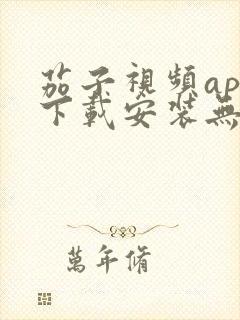 茄子視頻ap
下載安装無
萬年脩